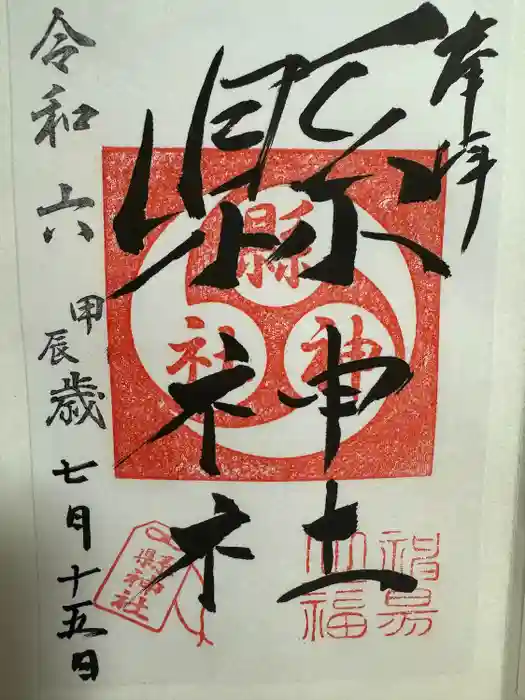 奉拝
縣神社
令和六甲辰歳七月十五日
縣神社
県神社